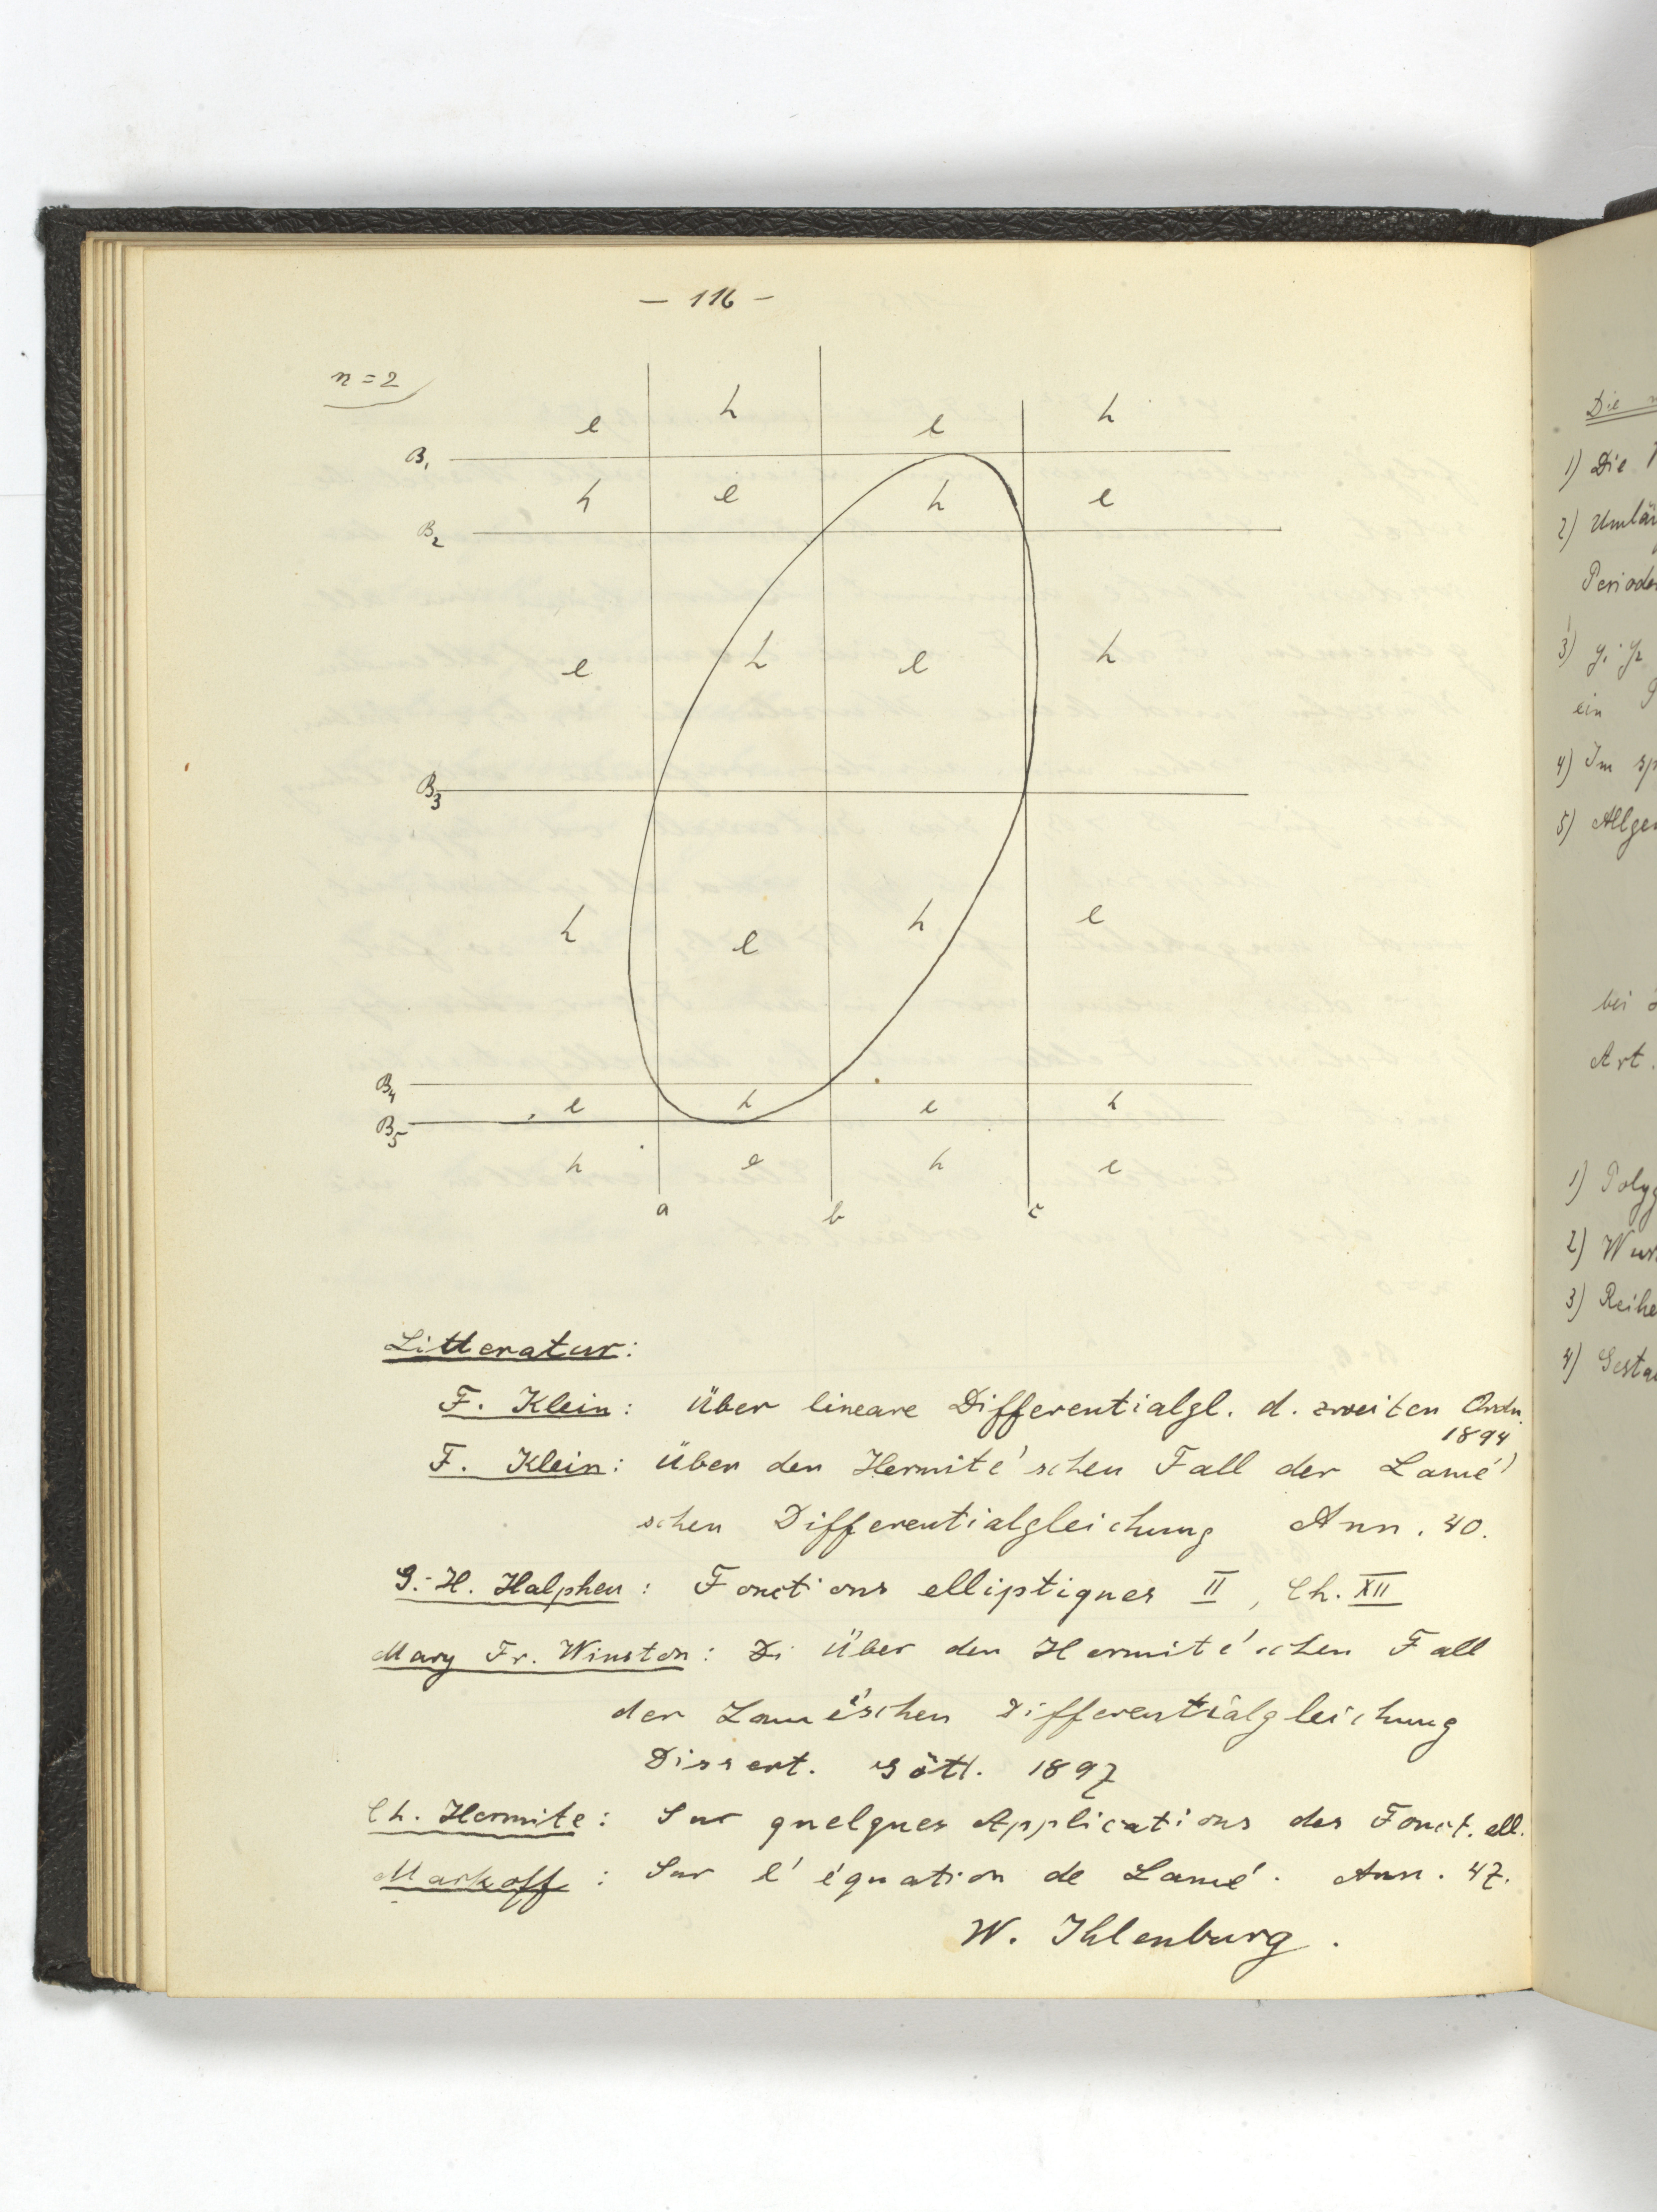 — 116 —
n = 2
e h e h
B1
h e h e
B2
e h e h
B3
h e h e
B4
e h e h
B5
h e h e
a b c
Litteratur:
F. Klein: Über lineare Differentialgl. d. zweiten Ordn.
1894
F. Klein: Über den Hermite'schen Fall der Lamé'
schen Differentialgleichung Ann. 40.
G.-H. Halphen: Fonctions elliptiques II, Ch. XII
Mary Fr. Winston: Di Über den Hermite'schen Fall
der Lamé'schen Differentialgleichung
Dissert. Gött. 1897
Ch. Hermite: Sur quelques Applications des Fonct. ell.
Markoff: Sur l'équation de Lamé. Ann. 47.
W. Ihlenburg.
Die
1) Die
2) Umläu
Periode
3) y1 y2
ein
4) Im sp
5) Allge
bei
Art.
1) Polyg
2) Wur
3) Reihe
4) Gesta